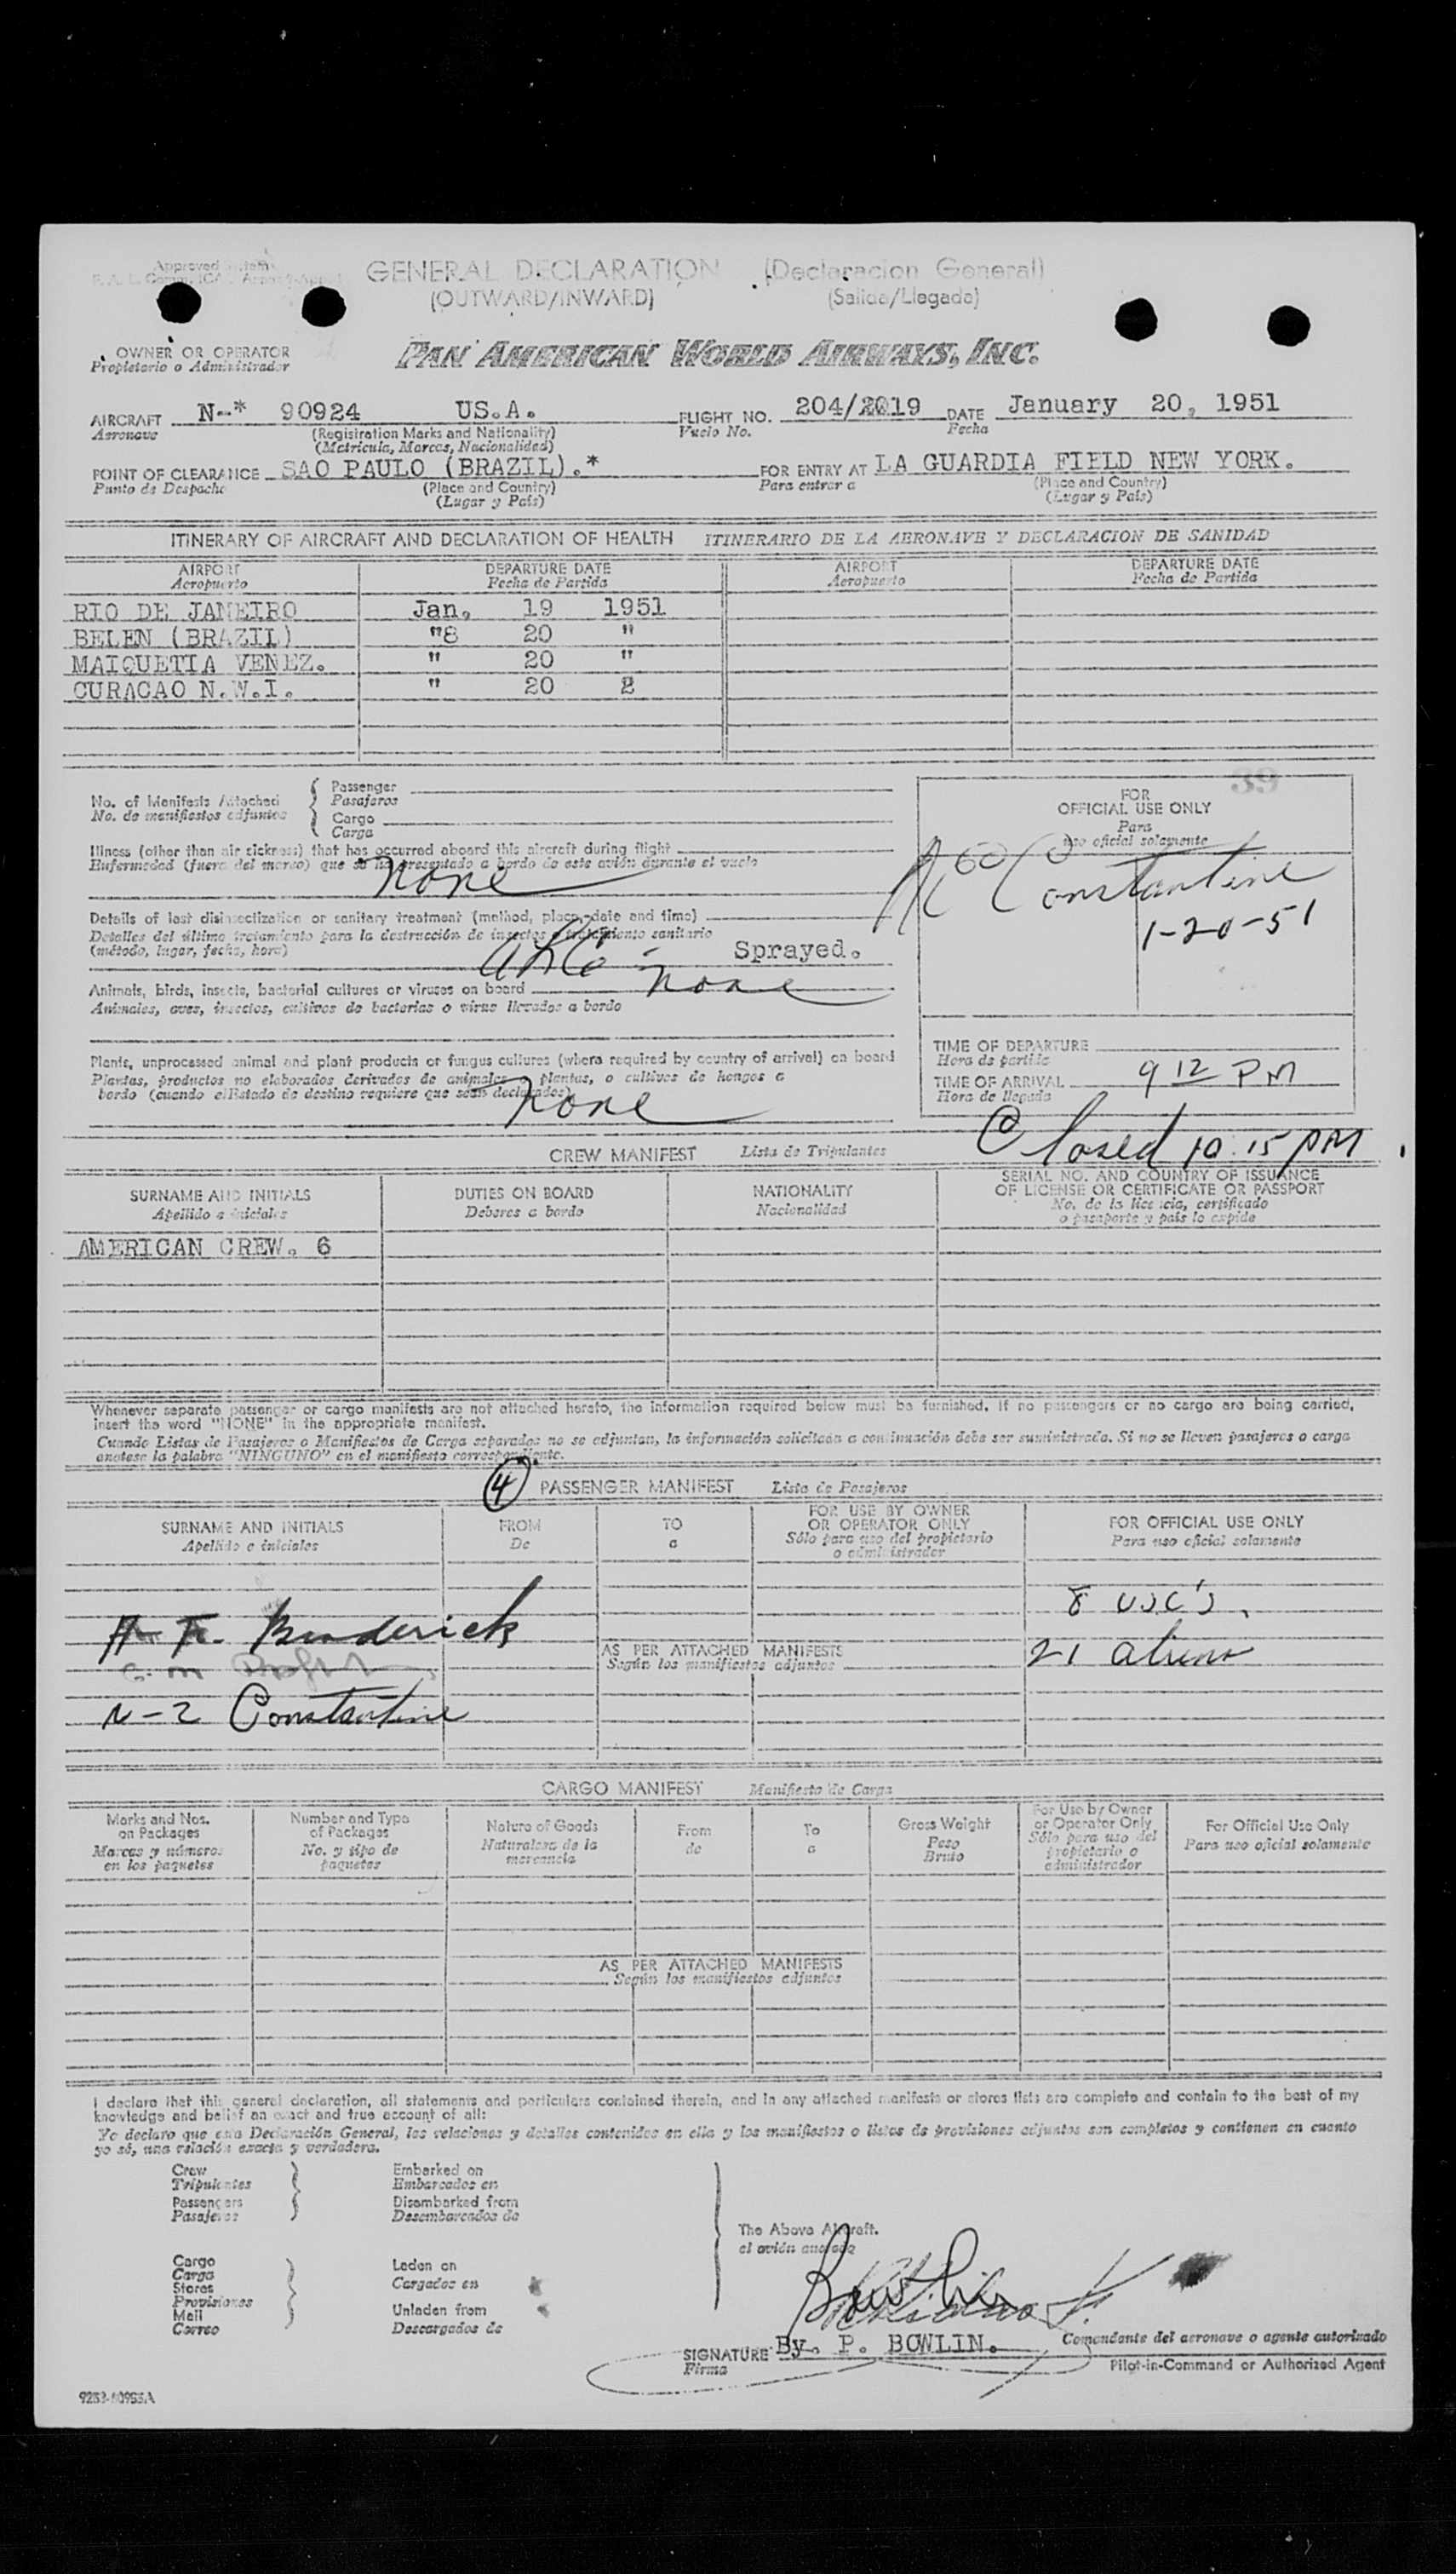 Approved
GENERAL DECLARATION (Declaracion General)
(OUTWARD/INWARD) (Salida/Llegada)
OWNER OR OPERATOR PAN AMERICAN WORLD AIRWAYS, INC.
Propietario o Administrador
AIRCRAFT N-* 90924 US.A. FLIGHT NO. 204/2019 DATE January 20, 1951
Aeronave (Registration Marks and Nationality) Vuelo No. Fecha
(Matricula, Marcas, Nacionalidad)
POINT OF CLEARANCE SAO PAULO (BRAZIL).* FOR ENTRY AT LA GUARDIA FIELD NEW YORK.
Punto de Despacho (Place and Country) Para entrar a (Place and Country)
(Lugar y País) (Lugar y País)
ITINERARY OF AIRCRAFT AND DECLARATION OF HEALTH ITINERARIO DE LA AERONAVE Y DECLARACION DE SANIDAD
AIRPORT DEPARTURE DATE AIRPORT DEPARTURE DATE
Aeropuerto Fecha de Partida Aeropuerto Fecha de Partida
RIO DE JANEIRO Jan, 19 1951
BELEN (BRAZIL) "8 20 "
MAIQUETIA VENEZ. " 20 "
CURACAO N.W.I. " 20 2
39
No. of Manifests Attached Passenger
No. de manifiestos adjuntos Pasajeros
Cargo
Carga
FOR
OFFICIAL USE ONLY
Para
uso oficial solamente
Illness (other than air sickness) that has occurred aboard this aircraft during flight
Enfermedad (fuera del mareo) que se ha presentado a bordo de este avión durante el vuelo
none
Constantine
1-20-51
Details of last disinsectization or sanitary treatment (method, place, date and time)
Detalles del último tratamiento para la destrucción de insectos o tratamiento sanitario
(método, lugar, fecha, hora) Sprayed.
Animals, birds, insects, bacterial cultures or viruses on board none
Animales, aves, insectos, cultivos de bacterias o virus llevados a bordo
Plants, unprocessed animal and plant products or fungus cultures (where required by country of arrival) on board
Plantas, productos no elaborados derivados de animales o plantas, o cultivos de hongos a
bordo (cuando el Estado de destino requiere que sean declarados)
none
TIME OF DEPARTURE
Hora de partida
TIME OF ARRIVAL 9 12 PM
Hora de llegada
Closed 10.15 PM
CREW MANIFEST Lista de Tripulantes
SURNAME AND INITIALS DUTIES ON BOARD NATIONALITY SERIAL NO. AND COUNTRY OF ISSUANCE
OF LICENSE OR CERTIFICATE OR PASSPORT
Apellido e iniciales Deberes a bordo Nacionalidad No. de la licencia, certificado
o pasaporte y país lo expide
AMERICAN CREW. 6
Whenever separate passenger or cargo manifests are not attached hereto, the information required below must be furnished. If no passengers or no cargo are being carried,
insert the word "NONE" in the appropriate manifest.
Cuando Listas de Pasajeros o Manifiestos de Carga separados no se adjuntan, la información solicitada a continuación debe ser suministrada. Si no se lleven pasajeros o carga
anótese la palabra "NINGUNO" en el manifiesto correspondiente.
4 PASSENGER MANIFEST Lista de Pasajeros
SURNAME AND INITIALS FROM TO FOR USE BY OWNER FOR OFFICIAL USE ONLY
OR OPERATOR ONLY
Apellido e iniciales De a Sólo para uso del propietario Para uso oficial solamente
o administrador
8 USC's.
Broderick
AS PER ATTACHED MANIFESTS 21 aliens
Según los manifiestos adjuntos
N-2 Constantine
CARGO MANIFEST Manifiesto de Carga
Marks and Nos. Number and Type Nature of Goods From To Gross Weight For Use by Owner For Official Use Only
on Packages of Packages or Operator Only
Marcas y números No. y tipo de Naturaleza de la de a Peso Sólo para uso del Para uso oficial solamente
en los paquetes paquetes mercancía Bruto propietario o
administrador
AS PER ATTACHED MANIFESTS
Según los manifiestos adjuntos
I declare that this general declaration, all statements and particulars contained therein, and in any attached manifests or stores lists are complete and contain to the best of my
knowledge and belief an exact and true account of all:
Yo declaro que esta Declaración General, las relaciones y detalles contenidos en ella y los manifiestos o listas de provisiones adjuntos son completos y contienen en cuanto
yo sé, una relación exacta y verdadera.
Crew Embarked on
Tripulantes Embarcados en
Passengers Disembarked from
Pasajeros Desembarcados de
The Above Aircraft.
Cargo Laden on
Carga Cargados en
Stores
Provisiones
Mail Unladen from
Correo Descargados de
SIGNATURE By. P. BOWLIN. Comandante del aeronave o agente autorizado
Firma Pilot-in-Command or Authorized Agent